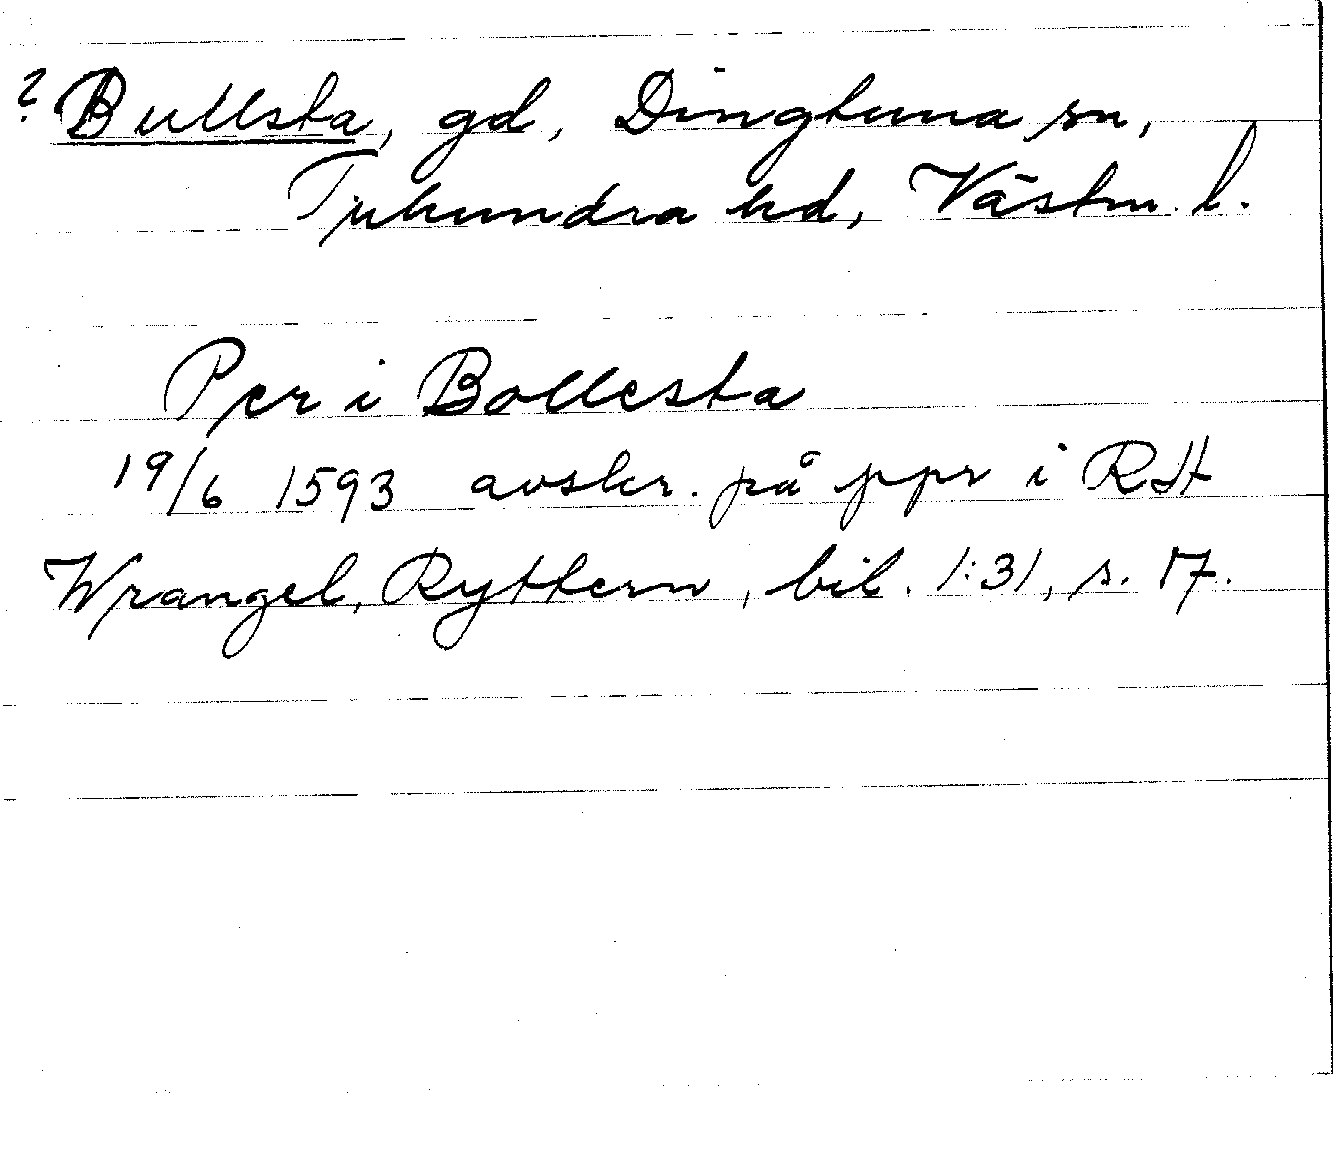 ? Bullsta, gd, Dingtuna sn,
Tuhundra hd, Västm. l.
Per i Bollesta
19/6 1593 avskr. på ppr i RH
Wrangel, Ryttern, bil. 1:31, s. 17.